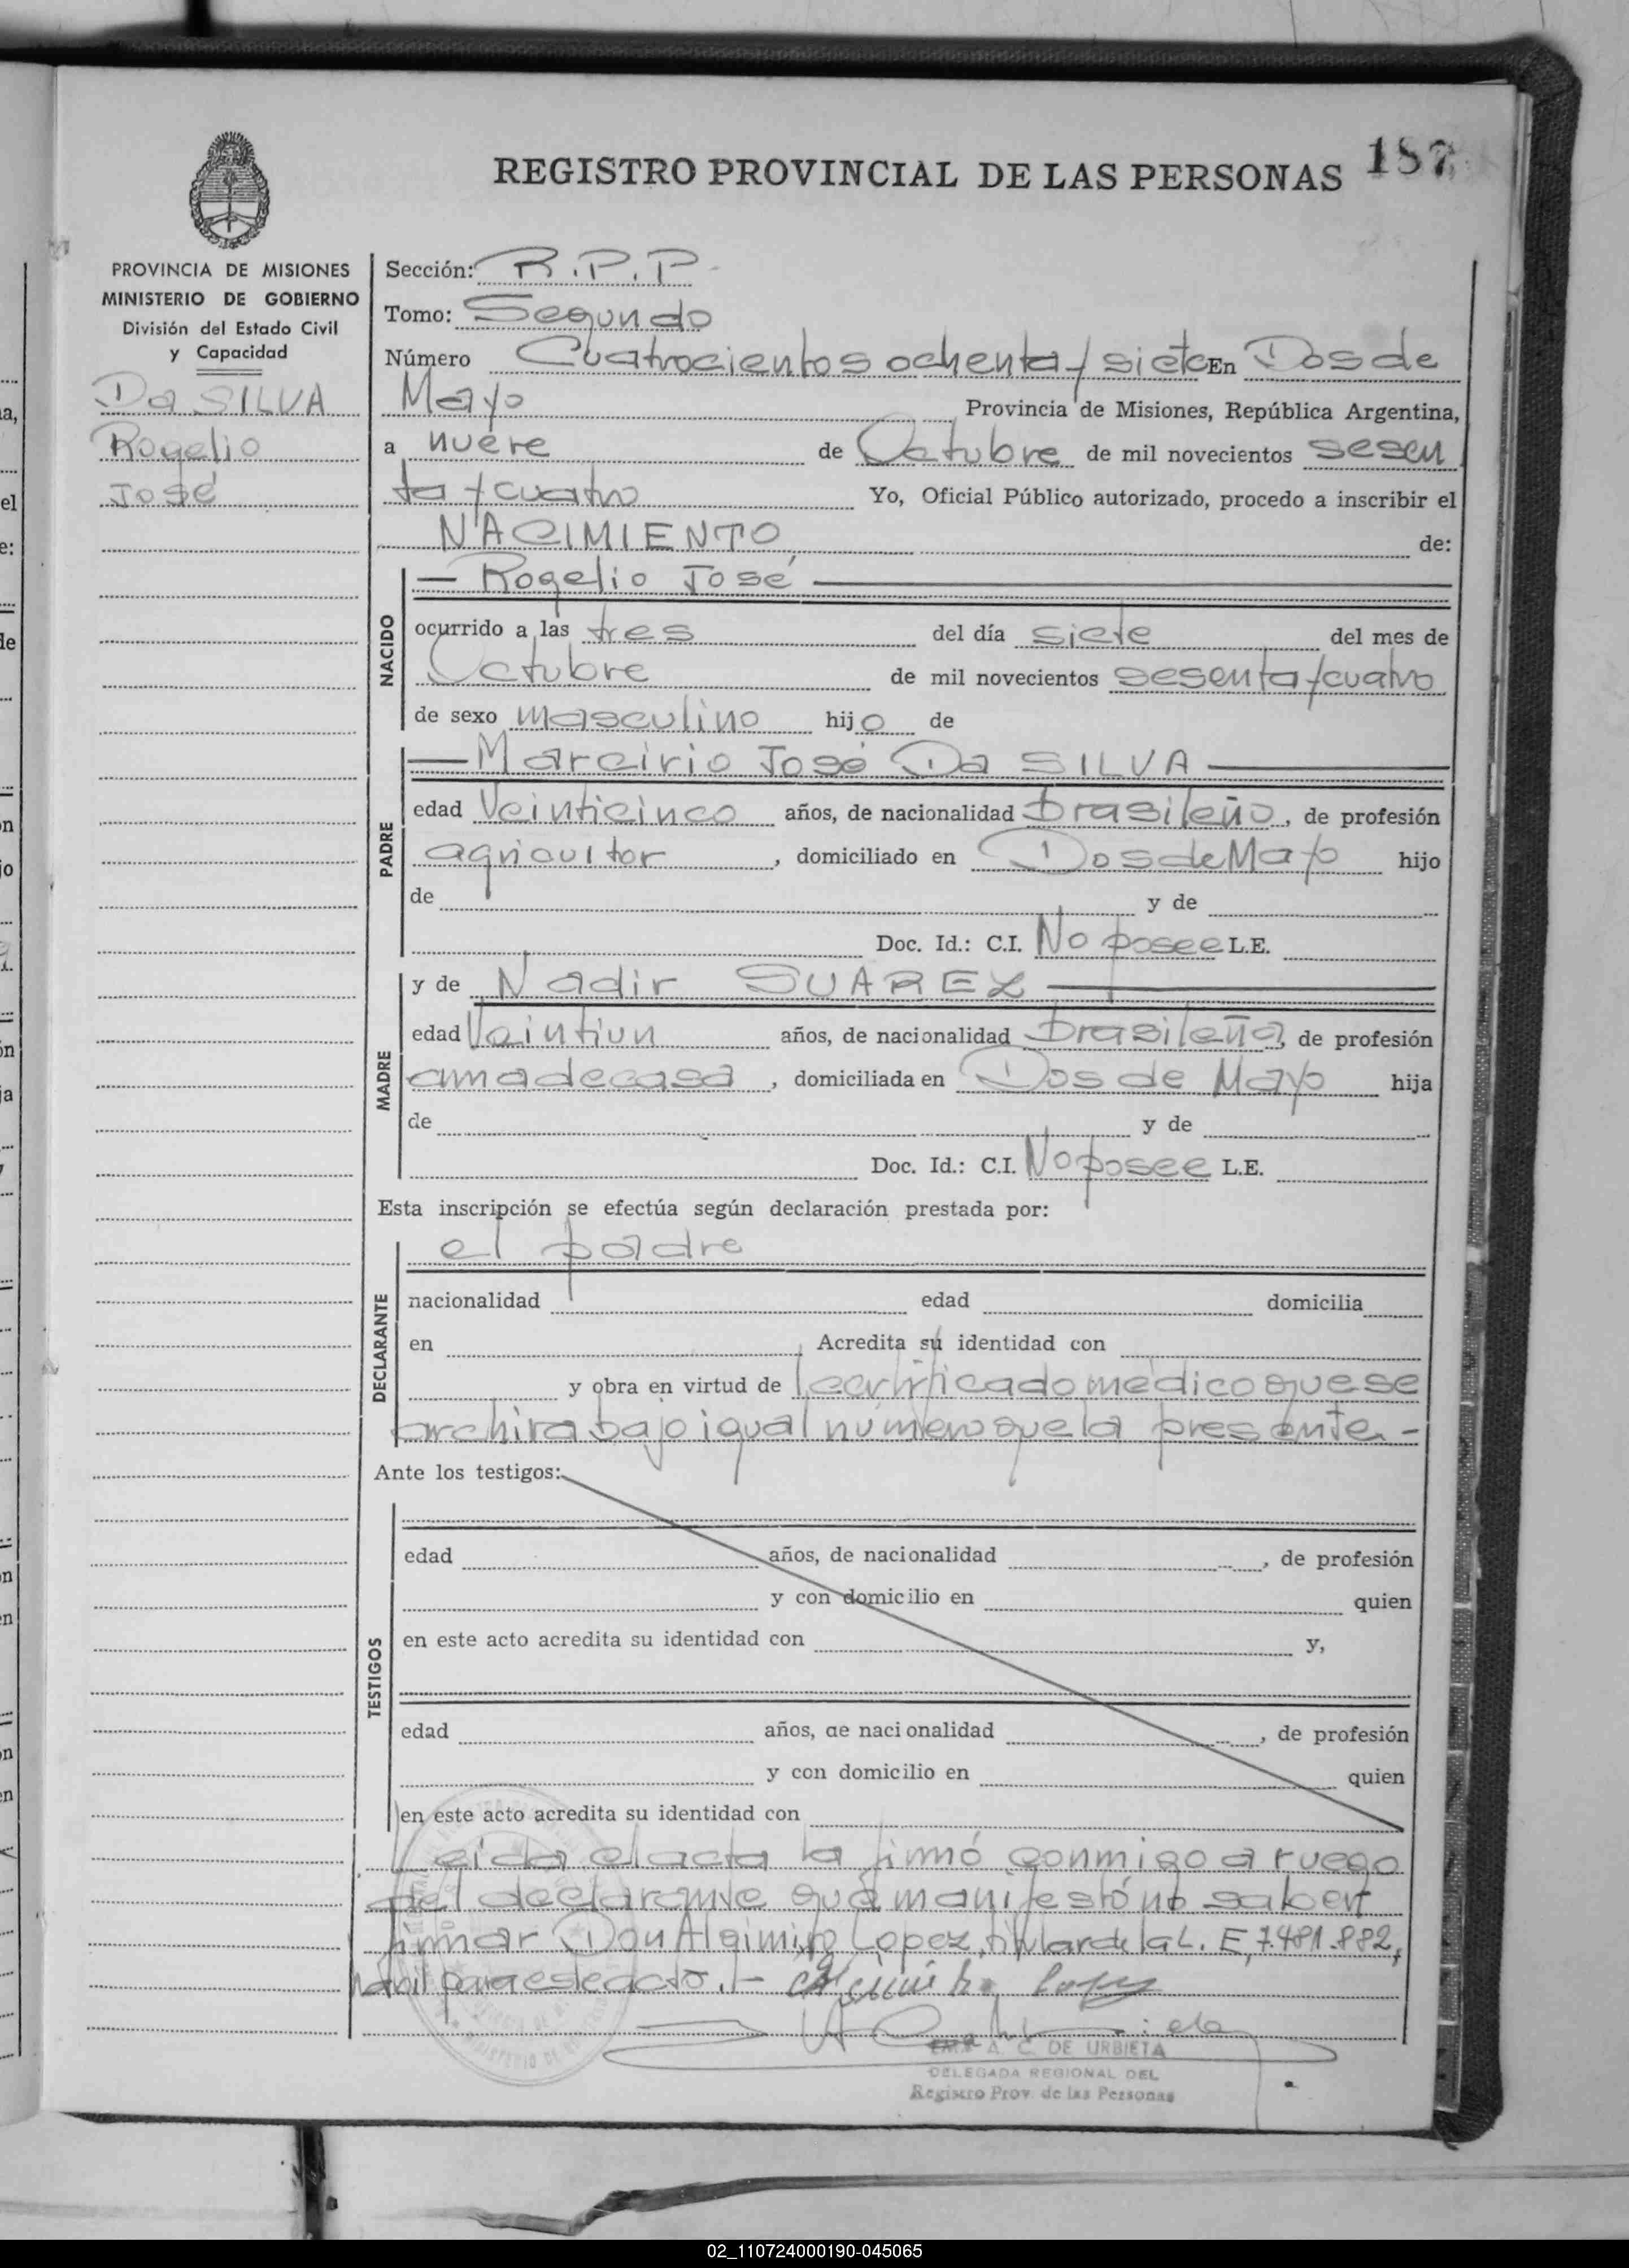 REGISTRO PROVINCIAL DE LAS PERSONAS 187
PROVINCIA DE MISIONES
MINISTERIO DE GOBIERNO
División del Estado Civil
y Capacidad
Da SILVA
Rogelio
José
Sección: R.P.P.
Tomo: Segundo
Número Cuatrocientos ochenta y siete En Dos de
Mayo Provincia de Misiones, República Argentina,
a nueve de Octubre de mil novecientos sesen
ta y cuatro Yo, Oficial Público autorizado, procedo a inscribir el
NACIMIENTO de:
NACIDO
— Rogelio José —
ocurrido a las tres del día siete del mes de
Octubre de mil novecientos sesenta y cuatro
de sexo masculino hijo de
PADRE
— Marcirio José Da SILVA —
edad Veinticinco años, de nacionalidad brasileño, de profesión
agricultor, domiciliado en Dos de Mayo hijo
de y de
Doc. Id.: C.I. No posee L.E.
MADRE
y de Nadir SUAREZ —
edad Veintiun años, de nacionalidad brasileña, de profesión
ama de casa, domiciliada en Dos de Mayo hija
de y de
Doc. Id.: C.I. No posee L.E.
Esta inscripción se efectúa según declaración prestada por:
DECLARANTE
el padre
nacionalidad edad domicilia
en Acredita su identidad con
y obra en virtud de certificado médico que se
archiva bajo igual número que la presente.-
Ante los testigos:
TESTIGOS
edad años, de nacionalidad , de profesión
y con domicilio en quien
en este acto acredita su identidad con y,
edad años, de nacionalidad , de profesión
y con domicilio en quien
en este acto acredita su identidad con
Leida el acta la firmó conmigo a ruego
del declarante que manifestó no saber
firmar Don Algimiro Lopez, titular de la L. E, 7.481.882,
hábil para este acto.-
A. C. DE URBIETA
DELEGADA REGIONAL DEL
Registro Prov. de las Personas
02_110724000190-045065